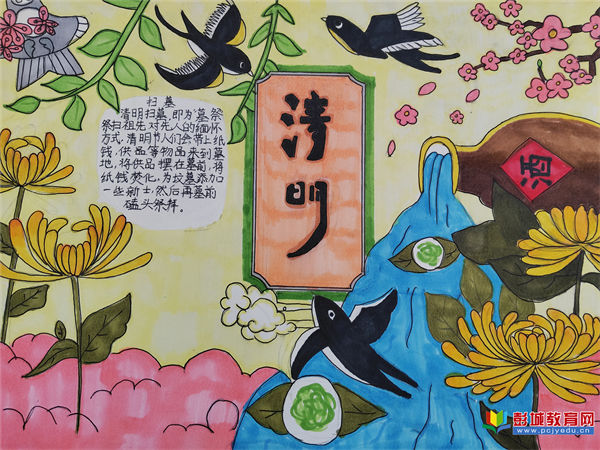 扫墓
清明扫墓,即为"墓祭"
祭扫祖先对先人的缅怀
方式,清明节人们会带上纸
钱,供品等物品来到墓
地,将供品摆在墓前,将
纸钱焚化,为坟墓添加
一些新土,然后再墓前
磕头祭拜。
清明
酒
彭城教育网
www.pcjyedu.cn